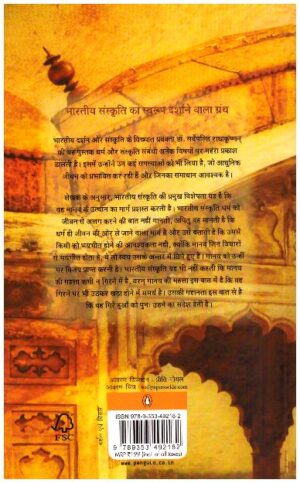 भारतीय संस्कृति का स्वरूप दर्शाने वाला ग्रंथ
भारतीय दर्शन और संस्कृति के विख्यात प्रवक्ता डॉ. सर्वेपल्लि राधाकृष्णन्
की यह पुस्तक धर्म और संस्कृति संबंधी अनेक विषयों पर गहरा प्रकाश
डालती है। इसमें उन्होंने उन कई समस्याओं को भी लिया है, जो आधुनिक
जीवन को प्रभावित कर रही हैं और जिनका समाधान आवश्यक है।
लेखक के अनुसार, भारतीय संस्कृति की प्रमुख विशेषता यह है कि
वह मानव में उत्थान का मार्ग प्रशस्त करती है। भारतीय संस्कृति धर्म को
जीवन से अलग करने की बात नहीं मानती, अपितु वह मानती है कि
धर्म ही जीवन की ओर ले जाने वाला मार्ग है और उसे बताती है कि उसे
किसी को भयभीत होने की आवश्यकता नहीं, क्योंकि मानव जिन विचारों
से भयभीत होता है, वे तो स्वयं उसके अन्तर में छिपे हुए हैं। मानव को उन्हीं
पर विजय प्राप्त करनी है। भारतीय संस्कृति यह भी नहीं कहती कि मानव
की महत्ता कभी न गिरने में है, वरन् मानव की महत्ता इस बात में है कि वह
गिरने पर भी उठकर खड़ा होने में समर्थ है। उसकी महानता इस बात में है
कि वह गिरे हुओं को पुनः उठने का संदेश देती है।
आवरण डिज़ाइन : प्रीति गोयल
आवरण चित्र :
FSC
धर्म एवं विचार
ISBN 978-9-353-49216-2
9 789353 492182
MRP ₹199 (incl. of all taxes)
www.penguin.co.in